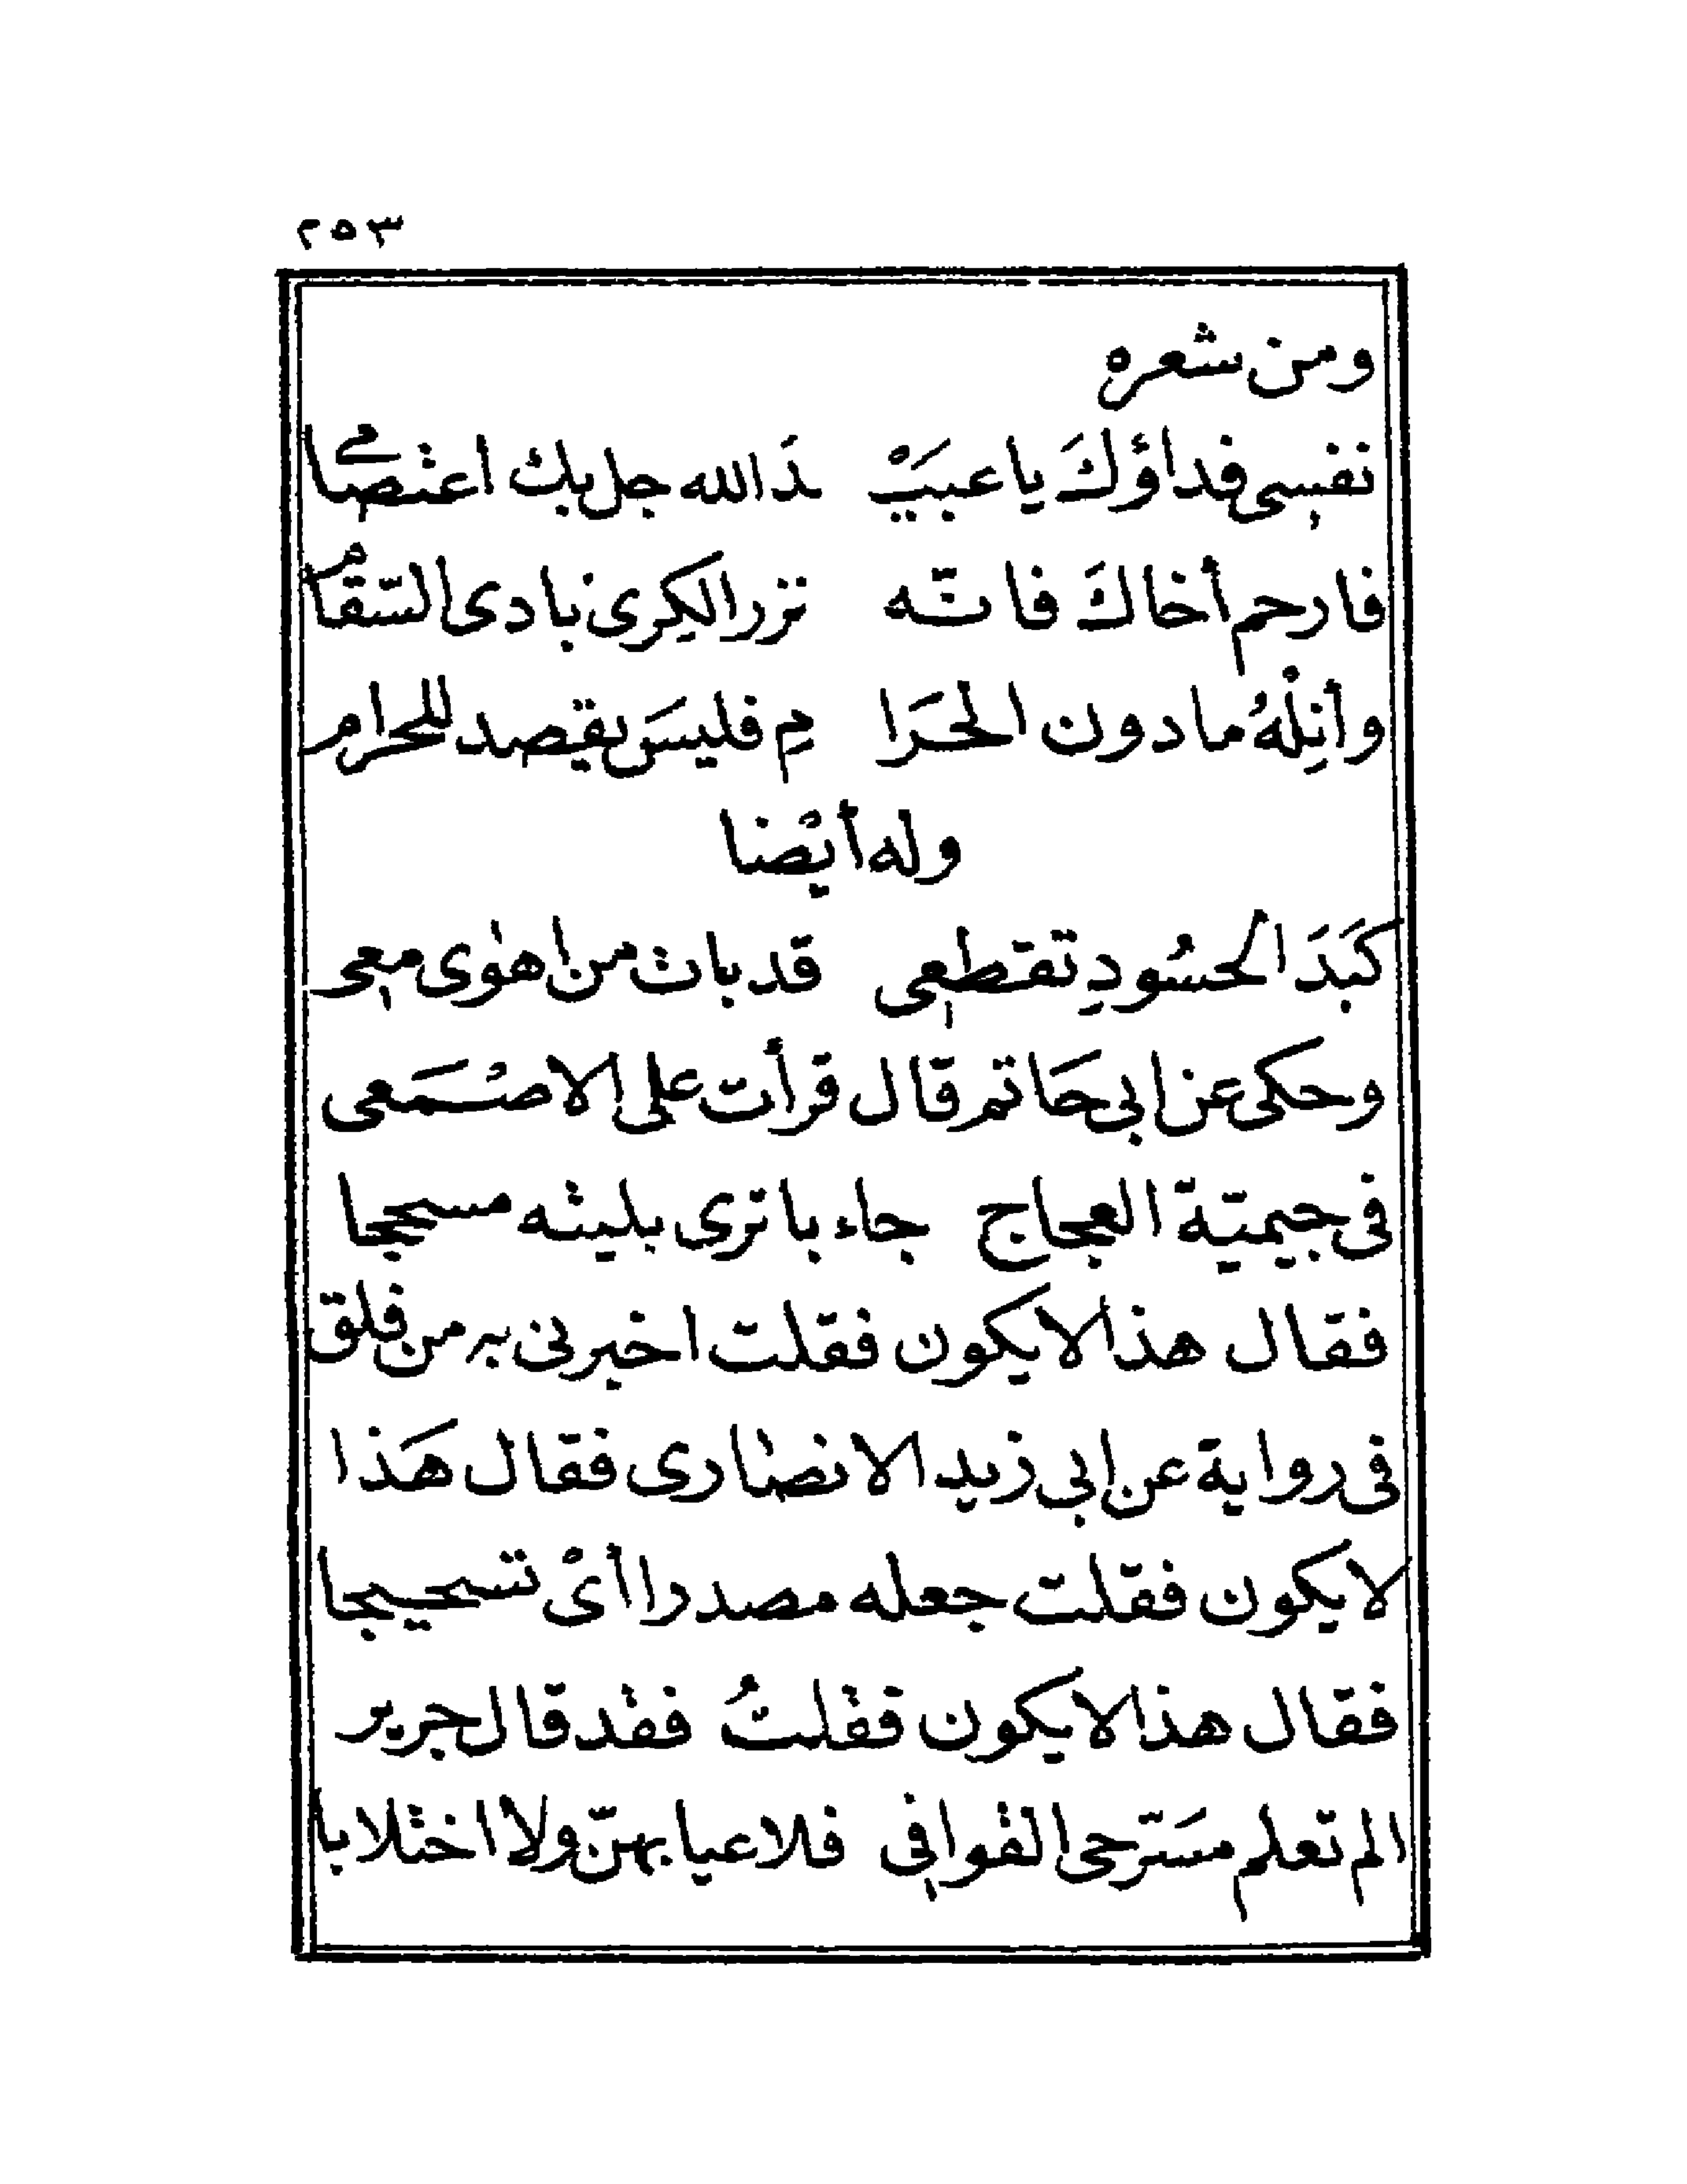 ٢٥٣
ومن شعره
نفسى فداؤكَ يا عبيَيْ دَ الله جل بك اعتصامى
فارحم أخاكَ فانّه نزر الكِرى بادى السّقام
وأنِلْهُ ما دون الحَرَا مِ فليسَ يقصد للحرام
وله أيْضا
كَبَدَ الحسُودِ تقطعى قد بات من اهوٰى معى
وحكى عن ابى حَاتم قال قرأت على الاصْمَعى
فى جيميّة العجاج جاء باترى بليته مسحجا
فقال هذا لا يكون فقلت اخبرنى به من فلق
فى رواية عن ابى زيد الانصارى فقال هَذا
لا يكون فقلت جعله مصدرا أىْ تسحيجا
فقال هذا لا يكون فقلتُ فقد قال جرير
الم تعلم مسَترحى القوافى فلا عيا بهنّ ولا اختلابا